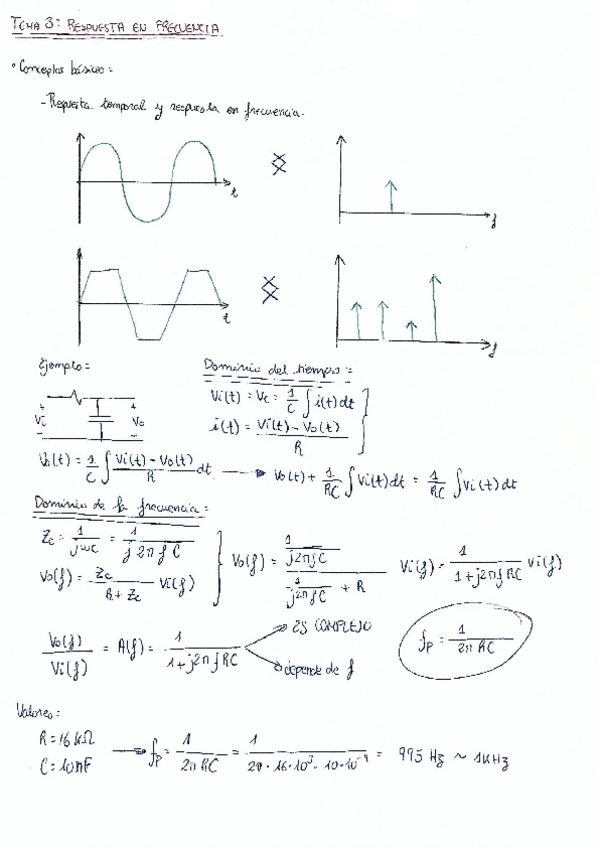 TEMA 3: RESPUESTA EN FRECUENCIA
• Conceptos básicos:
- Respuesta temporal y respuesta en frecuencia.
t
f
t
f
Ejemplo:
Dominio del tiempo:
Vi(t) = Vc = 1/C ∫ i(t) dt
i(t) = Vi(t) - Vo(t) / R
Vi
Vo
+
+
-
-
Vo(t) = 1/C ∫ Vi(t) - Vo(t) / R dt → Vo(t) + 1/RC ∫ Vi(t) dt = 1/RC ∫ Vi(t) dt
Dominio de la frecuencia:
Zc = 1/jωC = 1/j2πfC
Vo(f) = Zc/R+Zc Vi(f)
Vo(f) = (1/j2πfC)/(1/j2πfC + R) Vi(f) = 1/1+j2πfRC Vi(f)
Vo(f)/Vi(f) = A(f) = 1/1+j2πfRC
ES COMPLEJO
depende de f
fp = 1/2πRC
Valores:
R = 16 kΩ
C = 10nF
→ fp = 1/2πRC = 1/2π·16·10³·10·10⁻⁹ = 995 Hz ~ 1KHz